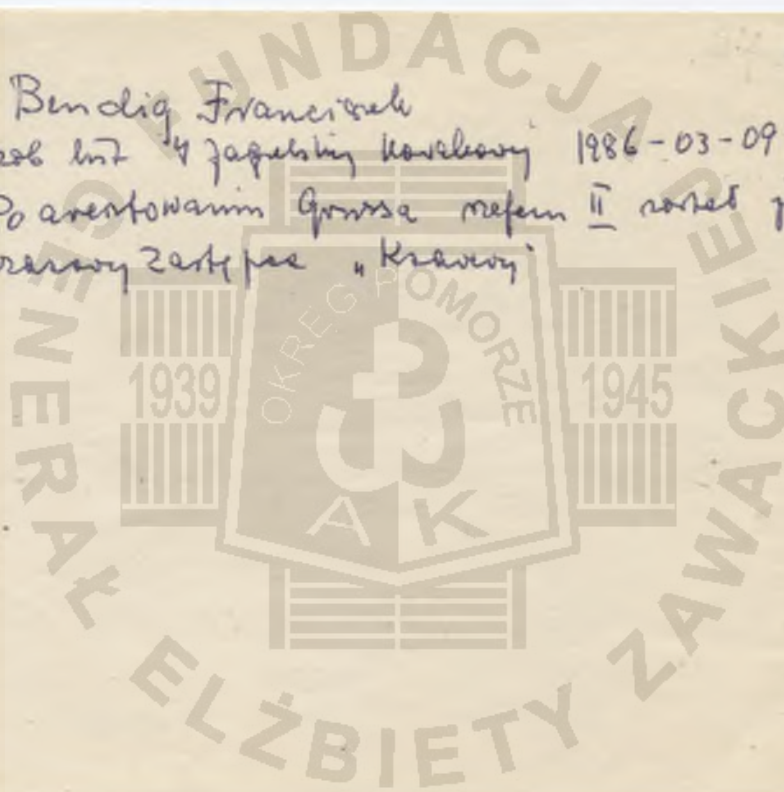 Bendig Franciszek
list Jagielskiej Kowalskiej 1986-03-09
Po aresztowaniu Grussa szefem II został
zastępca „Krawiec”
FUNDACJA
GENERAŁ ELŻBIETY ZAWACKIEJ
OKRĘG POMORZE
1939 1945
AK